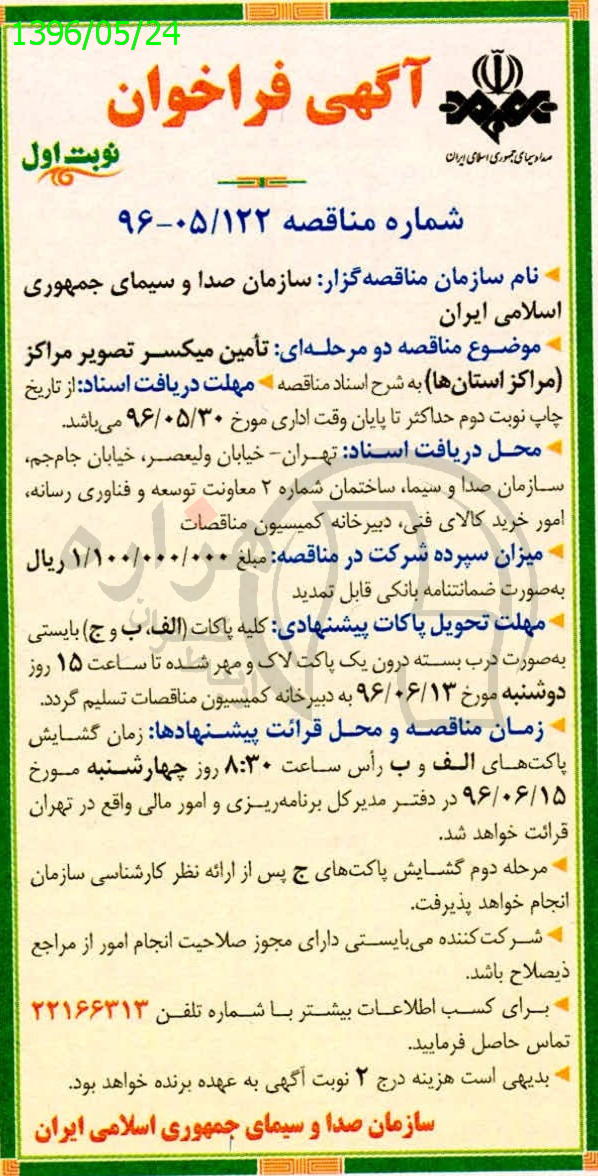 1396/05/24
آگهی فراخوان
صدا و سیمای جمهوری اسلامی ایران
نوبت اول
شماره مناقصه ۹۶-۰۵/۱۲۲
نام سازمان مناقصه‌گزار: سازمان صدا و سیمای جمهوری
اسلامی ایران
موضوع مناقصه دو مرحله‌ای: تأمین میکسر تصویر مراکز
(مراکز استان‌ها) به شرح اسناد مناقصه مهلت دریافت اسناد: از تاریخ
چاپ نوبت دوم حداکثر تا پایان وقت اداری مورخ ۹۶/۰۵/۳۰ می‌باشد.
محل دریافت اسناد: تهران- خیابان ولیعصر، خیابان جام‌جم،
سازمان صدا و سیما، ساختمان شماره ۲ معاونت توسعه و فناوری رسانه،
امور خرید کالای فنی، دبیرخانه کمیسیون مناقصات
میزان سپرده شرکت در مناقصه: مبلغ ۱/۱۰۰/۰۰۰/۰۰۰ ریال
به‌صورت ضمانتنامه بانکی قابل تمدید
مهلت تحویل پاکات پیشنهادی: کلیه پاکات (الف، ب و ج) بایستی
به‌صورت درب بسته درون یک پاکت لاک و مهر شده تا ساعت ۱۵ روز
دوشنبه مورخ ۹۶/۰۶/۱۳ به دبیرخانه کمیسیون مناقصات تسلیم گردد.
زمان مناقصه و محل قرائت پیشنهادها: زمان گشایش
پاکت‌های الف و ب رأس ساعت ۸:۳۰ روز چهارشنبه مورخ
۹۶/۰۶/۱۵ در دفتر مدیرکل برنامه‌ریزی و امور مالی واقع در تهران
قرائت خواهد شد.
مرحله دوم گشایش پاکت‌های ج پس از ارائه نظر کارشناسی سازمان
انجام خواهد پذیرفت.
شرکت‌کننده می‌بایستی دارای مجوز صلاحیت انجام امور از مراجع
ذیصلاح باشد.
برای کسب اطلاعات بیشتر با شماره تلفن ۲۲۱۶۶۳۱۳
تماس حاصل فرمایید.
بدیهی است هزینه درج ۲ نوبت آگهی به عهده برنده خواهد بود.
سازمان صدا و سیمای جمهوری اسلامی ایران
هزاره